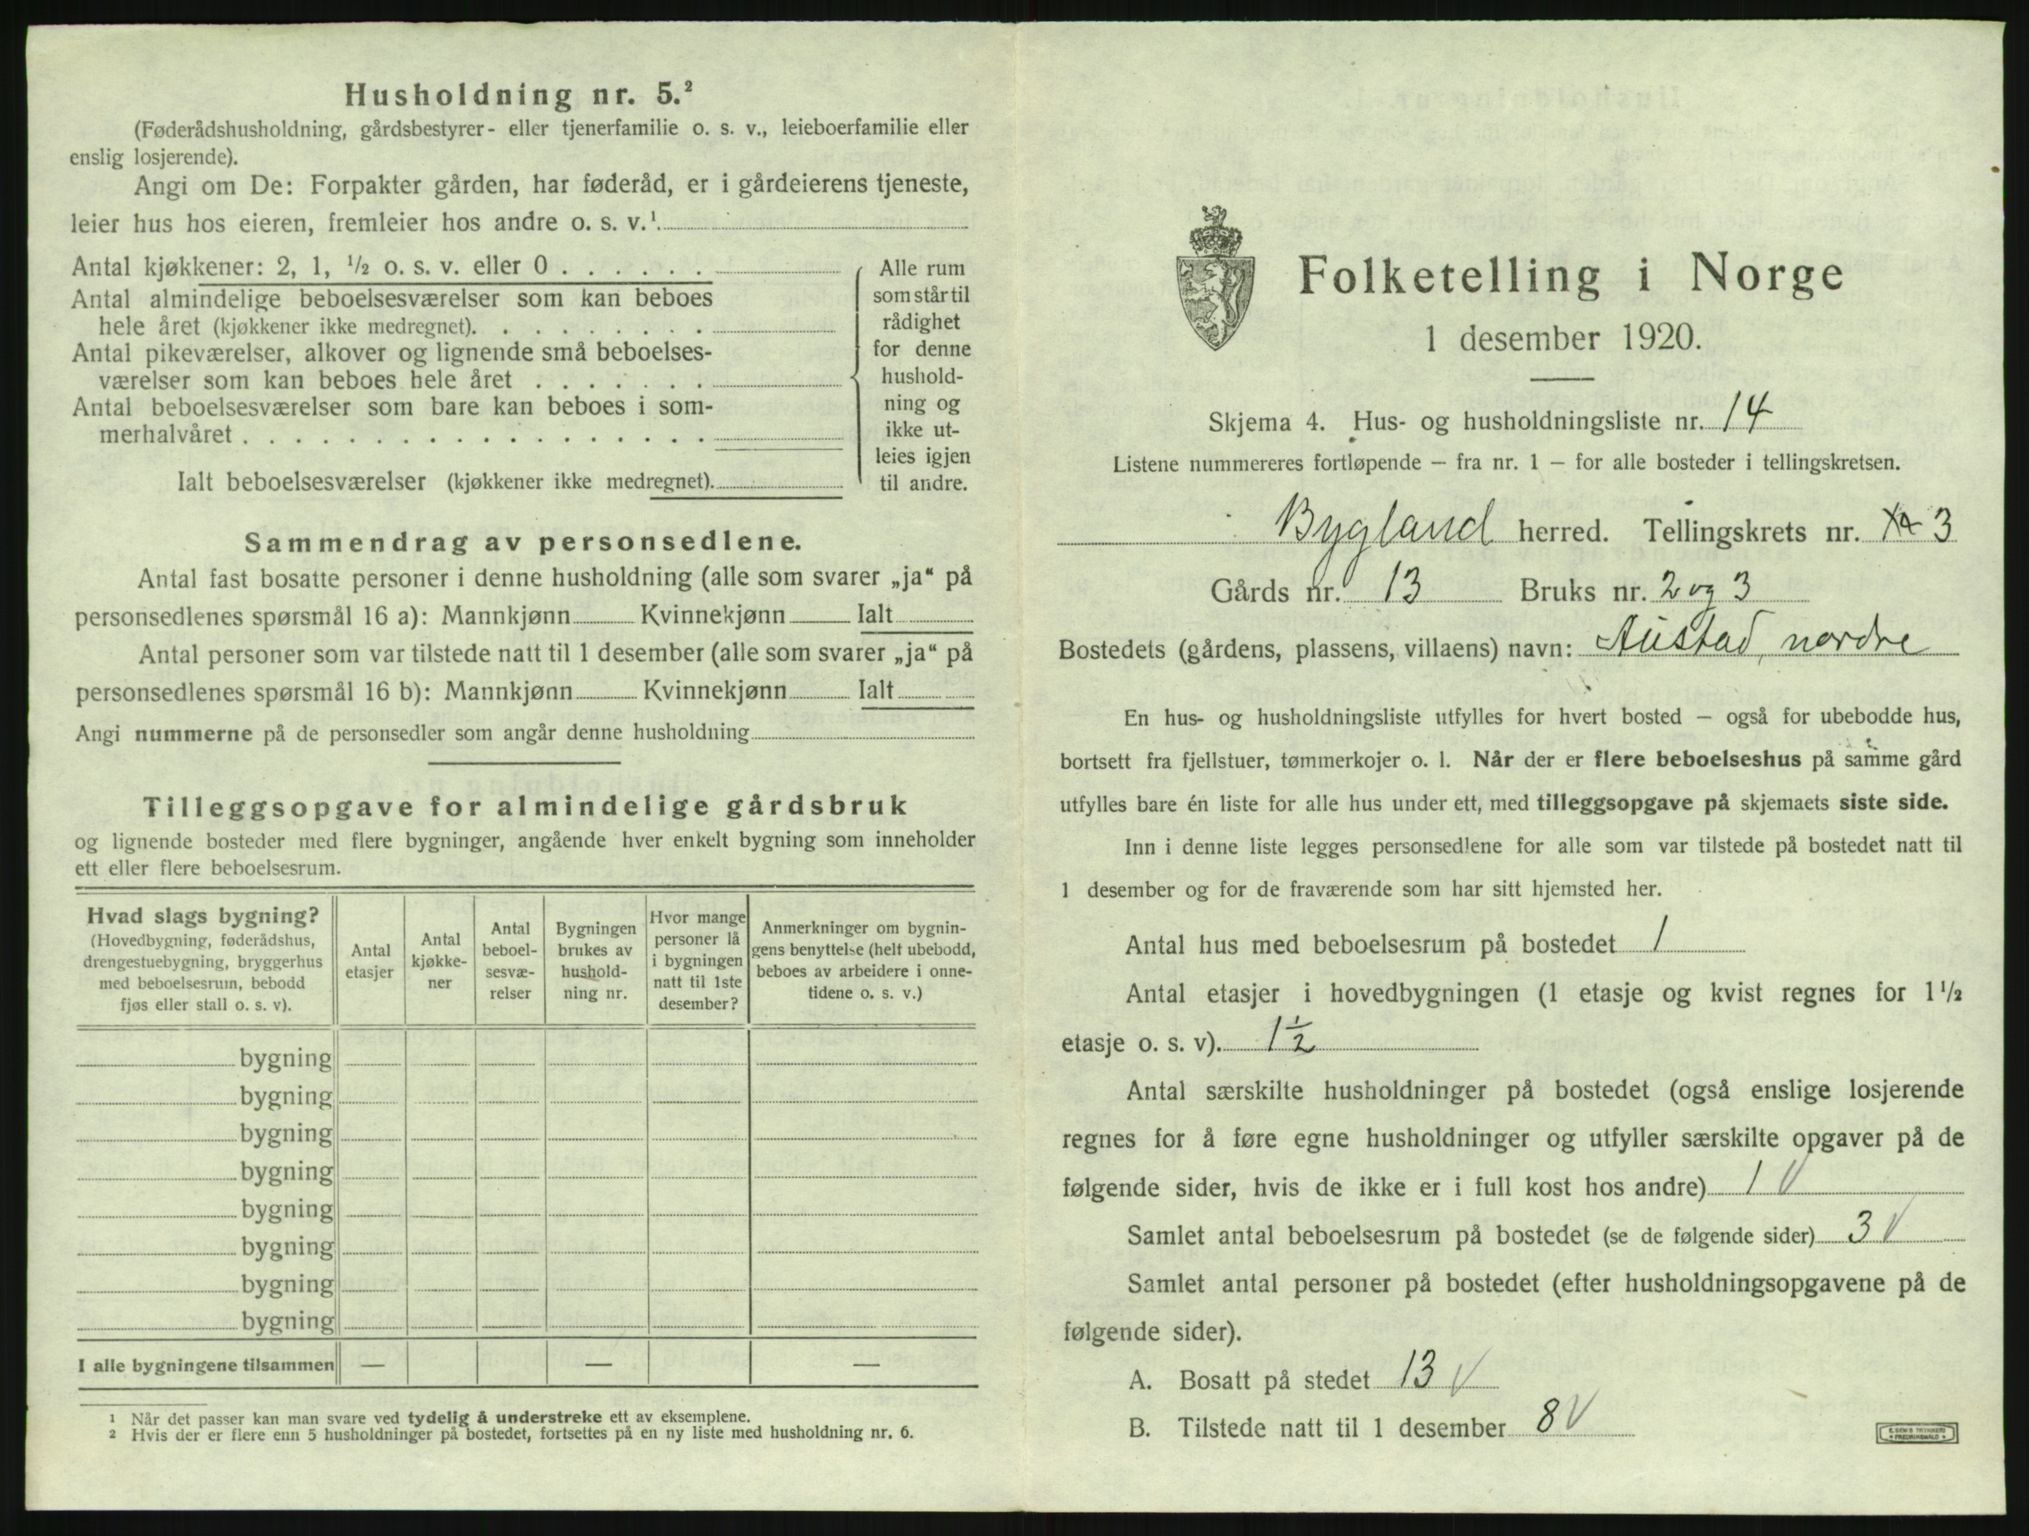 Husholdning nr. 5.²
(Føderådshusholdning, gårdsbestyrer- eller tjenerfamilie o. s. v., leieboerfamilie eller
enslig losjerende).
Angi om De: Forpakter gården, har føderåd, er i gårdeierens tjeneste,
leier hus hos eieren, fremleier hos andre o. s. v.¹
Antal kjøkkener: 2, 1, ½ o. s. v. eller 0 . . . . . .
Antal almindelige beboelsesværelser som kan beboes
hele året (kjøkkener ikke medregnet). . . . . . . . .
Antal pikeværelser, alkover og lignende små beboelses-
værelser som kan beboes hele året . . . . . . .
Antal beboelsesværelser som bare kan beboes i som-
merhalvåret . . . . . . . . . . . . . . . . . .
Ialt beboelsesværelser (kjøkkener ikke medregnet).
Alle rum
som står til
rådighet
for denne
hushold-
ning og
ikke ut-
leies igjen
til andre.
Sammendrag av personsedlene.
Antal fast bosatte personer i denne husholdning (alle som svarer „ja“ på
personsedlenes spørsmål 16 a): Mannkjønn Kvinnekjønn Ialt
Antal personer som var tilstede natt til 1 desember (alle som svarer „ja“ på
personsedlenes spørsmål 16 b): Mannkjønn Kvinnekjønn Ialt
Angi nummerne på de personsedler som angår denne husholdning
Tilleggsopgave for almindelige gårdsbruk
og lignende bosteder med flere bygninger, angående hver enkelt bygning som inneholder
ett eller flere beboelsesrum.
Hvad slags bygning?
(Hovedbygning, føderådshus,
drengestuebygning, bryggerhus
med beboelsesrum, bebodd
fjøs eller stall o. s. v).
Antal
etasjer
Antal
kjøkke-
ner
Antal
beboel-
sesvæ-
relser
Bygningen
brukes av
hushold-
ning nr.
Hvor mange
personer lå
i bygningen
natt til 1ste
desember?
Anmerkninger om bygnin-
gens benyttelse (helt ubebodd,
beboes av arbeidere i onne-
tidene o. s. v.)
bygning
bygning
bygning
bygning
bygning
bygning
bygning
bygning
I alle bygningene tilsammen — — —
¹ Når det passer kan man svare ved tydelig å understreke ett av eksemplene.
² Hvis der er flere enn 5 husholdninger på bostedet, fortsettes på en ny liste med husholdning nr. 6.
Folketelling i Norge
1 desember 1920.
Skjema 4. Hus- og husholdningsliste nr. 14
Listene nummereres fortløpende — fra nr. 1 — for alle bosteder i tellingskretsen.
Bygland herred. Tellingskrets nr. 3
Gårds nr. 13 Bruks nr. 2 og 3
Bostedets (gårdens, plassens, villaens) navn: Austad, nordre
En hus- og husholdningsliste utfylles for hvert bosted — også for ubebodde hus,
bortsett fra fjellstuer, tømmerkojer o. l. Når der er flere beboelseshus på samme gård
utfylles bare én liste for alle hus under ett, med tilleggsopgave på skjemaets siste side.
Inn i denne liste legges personsedlene for alle som var tilstede på bostedet natt til
1 desember og for de fraværende som har sitt hjemsted her.
Antal hus med beboelsesrum på bostedet 1
Antal etasjer i hovedbygningen (1 etasje og kvist regnes for 1½
etasje o. s. v). 1½
Antal særskilte husholdninger på bostedet (også enslige losjerende
regnes for å føre egne husholdninger og utfyller særskilte opgaver på de
følgende sider, hvis de ikke er i full kost hos andre) 1 V
Samlet antal beboelsesrum på bostedet (se de følgende sider) 3 V
Samlet antal personer på bostedet (efter husholdningsopgavene på de
følgende sider).
A. Bosatt på stedet 13 V
B. Tilstede natt til 1 desember 8 V